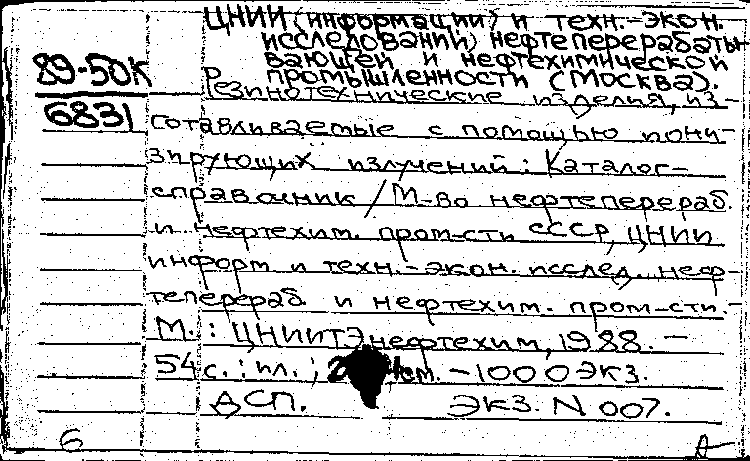 ЦНИИ (информации) и техн.-экон.
исследований) нефтеперерабаты-
вающей и нефтехимической
промышленности (Москва).
89-50К
6831
Резинотехнические изделия, из-
сотавливаемые с помощью иони-
зирующих излучений: Каталог-
справочник / М-во нефтеперераб.
и нефтехим. пром-сти СССР, ЦНИИ
информ и техн.-экон. исслед. неф-
теперераб. и нефтехим. пром-сти.-
М.: ЦНИИТЭнефтехим, 1988. -
54 с.: ил.; см. - 1000 экз.
ДСП. Экз. N 007.
6 А